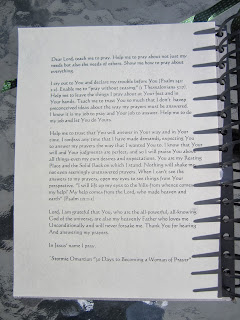 Dear Lord, teach me to pray. Help me to pray about not just my
needs but also the needs of others. Show me how to pray about
everything.
I cry out to You and declare my trouble before You (Psalm 142:
1-2). Enable me to "pray without ceasing" (1 Thessalonians 5:17).
Help me to leave the things I pray about at Your feet and in
Your hands. Teach me to trust You so much that I don't having
preconceived ideas about the way my prayers must be answered.
I know it is my job to pray and Your job to answer. Help me to do
my job and let You do Yours.
Help me to trust that You will answer in Your way and in Your
time. I confess any time that I have made demands, expecting You
to answer my prayers the way that I wanted You to. I know that Your
will and Your judgments are perfect, and so I will praise You above
all things even my own desires and expectations. You are my Resting
Place and the Solid Rock on which I stand. Nothing will shake me,
not even seemingly-unanswered prayers. When I can't see the
answers to my prayers, open my eyes to see things from Your
perspective. "I will lift up my eyes to the hills from whence comes
my help? My help comes from the Lord, who made heaven and
earth" (Psalm 121:1-2)
Lord, I am grateful that You, who are the all-powerful, all-knowing
God of the universe, are also my heavenly Father who loves me
Unconditionally and will never forsake me. Thank You for hearing
And answering my prayers.
In Jesus' name I pray.
Stormie Omartian